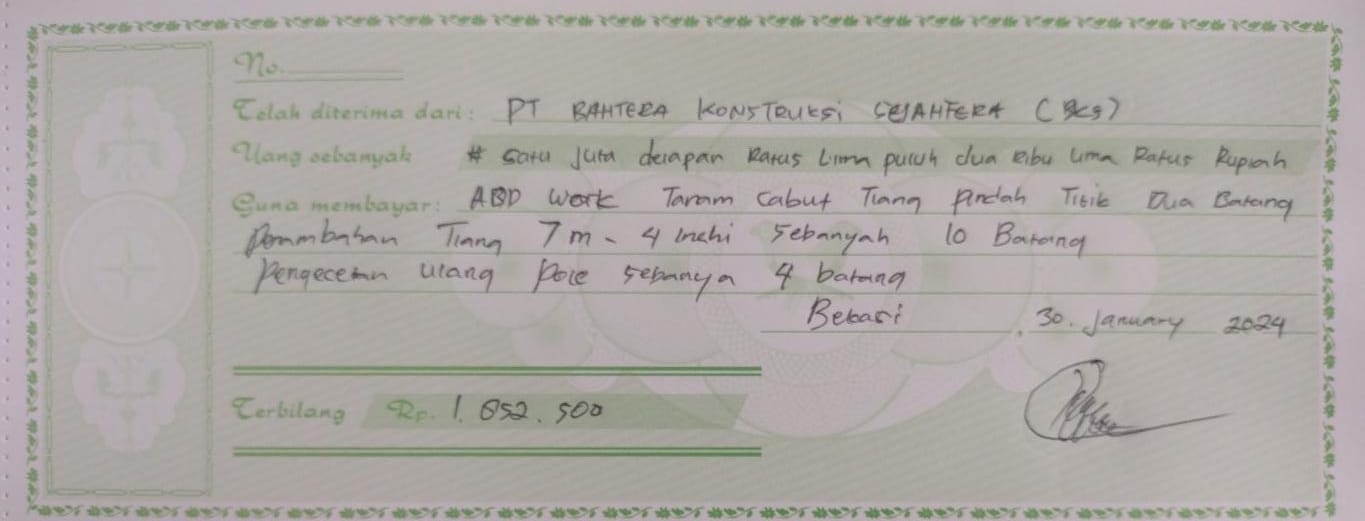 No.
Telah diterima dari: PT BAHTERA KONSTRUKSI SEJAHTERA (BKS)
Uang sebanyak # satu juta delapan Ratus Lima puluh dua Ribu Lima Ratus Rupiah
Guna membayar: ABD Work Tanam cabut Tiang pindah Titik Dua Batang
Penambahan Tiang 7 m - 4 inchi sebanyak 10 Batang
pengecetan ulang pole sebanya 4 batang
Bekasi, 30. january 2024
Terbilang Rp. 1.852.500